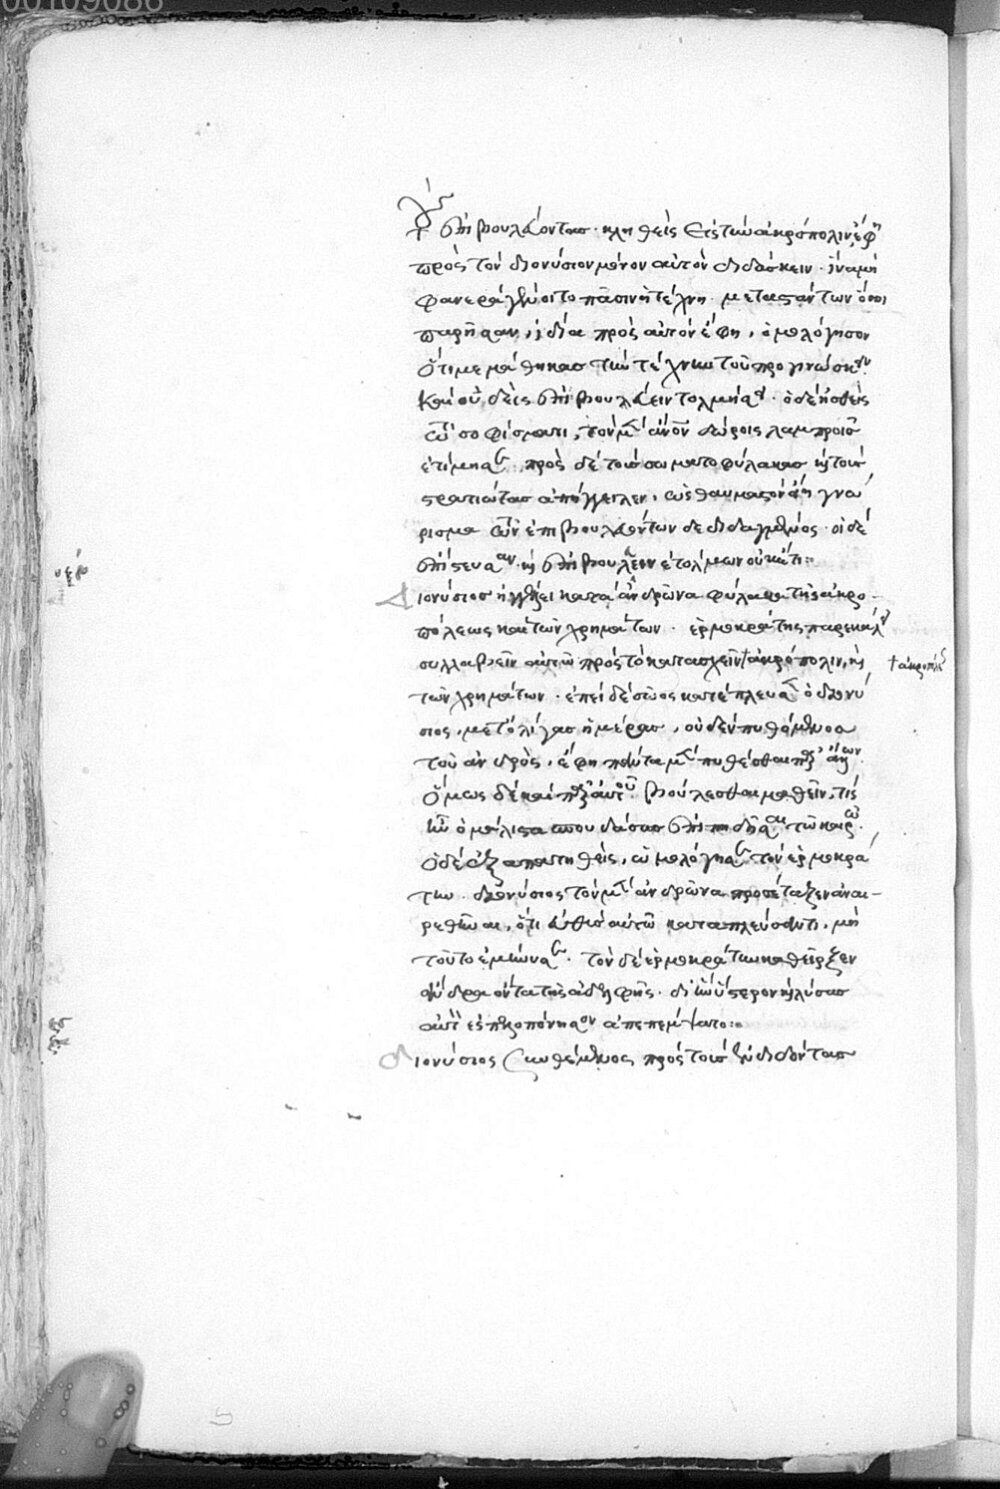 00109088
ἐπιβουλεύοντας · κληθεὶς εἰς τὴν ἀκρόπολιν, ἔφη
πρὸς τὸν διονύσιον μόνον αὐτὸν διδάσκειν · ἵνα μὴ
φανερὰ γένοιτο πᾶσιν ἡ τέχνη · μεταστάντων ὅσοι
παρῆσαν, ἰδία πρὸς αὐτὸν ἔφη, ὁμολόγησον
ὅτι μεμάθηκας τὴν τέχνην τοῦ προγινώσκειν
καὶ οὐδεὶς ἐπιβουλεύειν τολμήσει · ὁ δὲ ἡσθεὶς
τῶ σοφίσματι, τὸν μὲν ἄνον δώροις λαμπροῖς
ἐτίμησε · πρὸς δὲ τοὺς σωματοφύλακας καὶ τοὺς
στρατιώτας ἀπήγγειλεν, ὡς θαυμαστὸν εἴη γνώ
ρισμα τῶν ἐπιβουλευόντων δεδιδαγμένος · οἱ δὲ
ἐπίστευσαν · καὶ ἐπιβουλεύειν ἐτόλμων οὐκέτι :
Διονύσιος κατα ἄνδρωνα φύλακα τῆς ἀκρο
πόλεως καὶ τῶν χρημάτων · ἑρμοκράτης παρεκάλει
συλλαβεῖν αὐτῶ πρὸς τὸ κατασχεῖν † ἀκρόπολιν, καὶ
τῶν χρημάτων · ἐπεὶ δὲ σῶος κατέπλευσεν ὁ διονύ
σιος, μετ' ὀλίγας ἡμέρας, οὐδὲν πυθόμενος
τοῦ ἀνδρὸς, ἔφη πάντα μὲν πυθέσθαι παρ' ἄλλων ·
ὅμως δὲ καὶ παρ' αὐτοῦ βούλεσθαι μαθεῖν, τίς
ἦν ὁ μάλιστα σπουδάσας ἐπιπηδῆσαι τῶ καιρῶ ·
ὁ δὲ ἐξαπατηθεὶς, ὡμολόγησε τὸν ἑρμοκρά
την · διονύσιος τὸν μὲν ἄνδρωνα προσέταξεν ἀναι
ρεθῆναι, ὅτι εὐθὺς αὐτῶ καταπλεύσαντι, μὴ
τοῦτο ἐμήνυσε · τὸν δὲ ἑρμοκράτην καθεῖρξεν
ἄνδρα ὄντα τῆς ἀδελφῆς · δι' ἣν ὕστερον καὶ λύσας
αὐτὸν ἐς πελοπόννησον ἀπεπέμψατο :
διονύσιος συνθέμενος πρὸς τοὺς ἐνδιδόντας